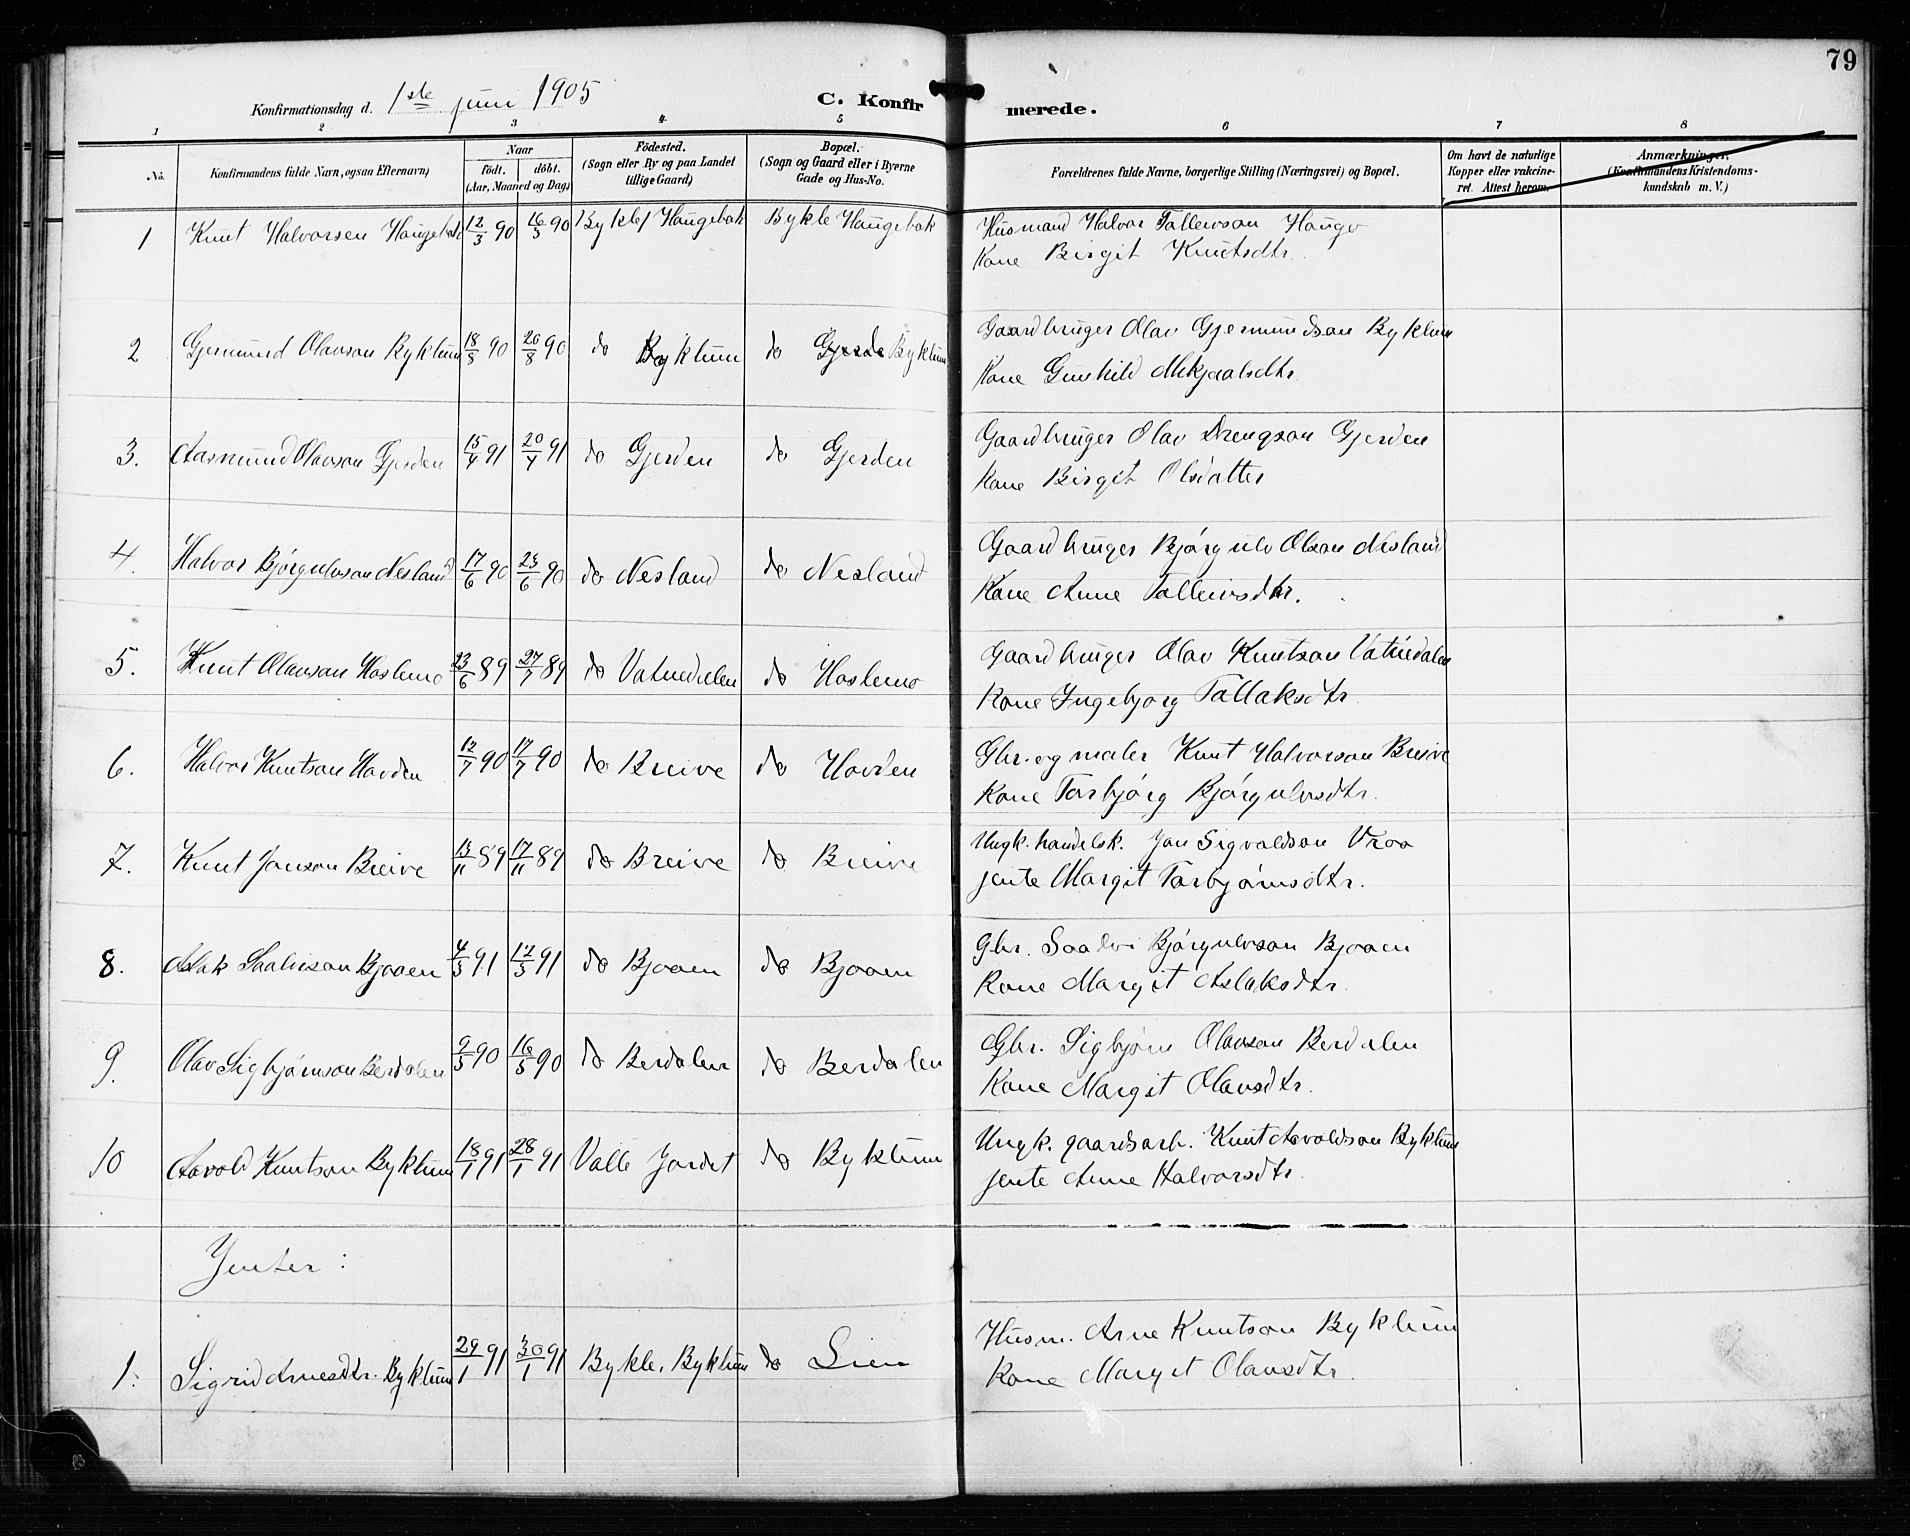 79
Konfirmationsdag d. 1ste juni 1905
C. Konfirmerede.
1 2 3 4 5 6 7 8
No.
Konfirmandens fulde Navn, ogsaa Efternavn)
Naar
födt. döbt.
(Aar, Maaned og Dag)
Födested.
(Sogn eller By og paa Landet
tillige Gaard)
Bopæl.
(Sogn og Gaard eller i Byerne
Gade og Hus-No.
Forældrenes fulde Navne, borgerlige Stilling (Næringsvei) og Bopæl.
Om havt de naturlige
Kopper eller vakcine-
ret. Attest herom.
Anmærkninger.
(Konfirmandens Kristendoms-
kundskab m. V.)
1 Knut Halvorsen Haugebak 12/3 90 16/3 90 Bykle, Haugebak Bykle Haugebak Husmand Halvor Tallevson Hauge
Kone Birgit Knutsdtr.
2 Gjermund Olavson Byklum 18/8 90 20/8 90 do Byklum do Byklum Gaardbruger Olav Gjermundson Byklum
Kone Gunhild Mikjaalsdtr.
3. Aasmund Olavson Gjerden 15/4 91 20/4 91 do Gjerden do Gjerden Gaardbruger Olav Drengson Gjerden
Kone Birgit Olsdatter
4. Halvor Bjørgulvson Nesland 17/6 90 23/6 90 do Nesland do Nesland Gaardbruger Bjørgulv Olson Nesland
Kone Anne Talleivsdtr.
5. Knut Olavson Hoslemo 23/6 89 27/7 89 do Vatnedalen do Hoslemo Gaardbruger Olav Knutson Vatnedalen
Kone Ingebjorg Tallaksdtr.
6. Halvor Knutson Hovden 12/7 90 17/7 90 do Breive do Hovden Gbr. og maler Knut Halvorson Breive
Kone Torbjørg Bjørgulvsdtr.
7. Knut Janson Breive 13/11 89 17/11 89 do Breive do Breive Ungk. handelsk. Jan Sigvaldson Vraa
jente Margit Torbjørnsdtr.
8. Aslak Saalvison Bjaaen 4/5 91 12/5 91 do Bjaaen do Bjaaen Gbr. Saalvi Bjørgulvson Bjaaen
Kone Margit Aslaksdtr.
9. Olav Sigbjørnson Berdalen 9/5 90 16/5 90 do Berdalen do Berdalen Gbr. Sigbjørn Olavson Berdalen
Kone Margit Olavsdtr.
10 Aavold Knutson Byklum 18/1 91 28/1 91 Valle Jordet do Byklum Ungk. gaardsarb. Knut Aavoldson Byklum
jente Anne Halvorsdtr.
Jenter:
1. Sigrid Arnesdtr. Byklum 29/1 91 30/1 91 Bykle, Byklum do Lien Husm. Arne Knutson Byklum
Kone Margit Olavsdtr.